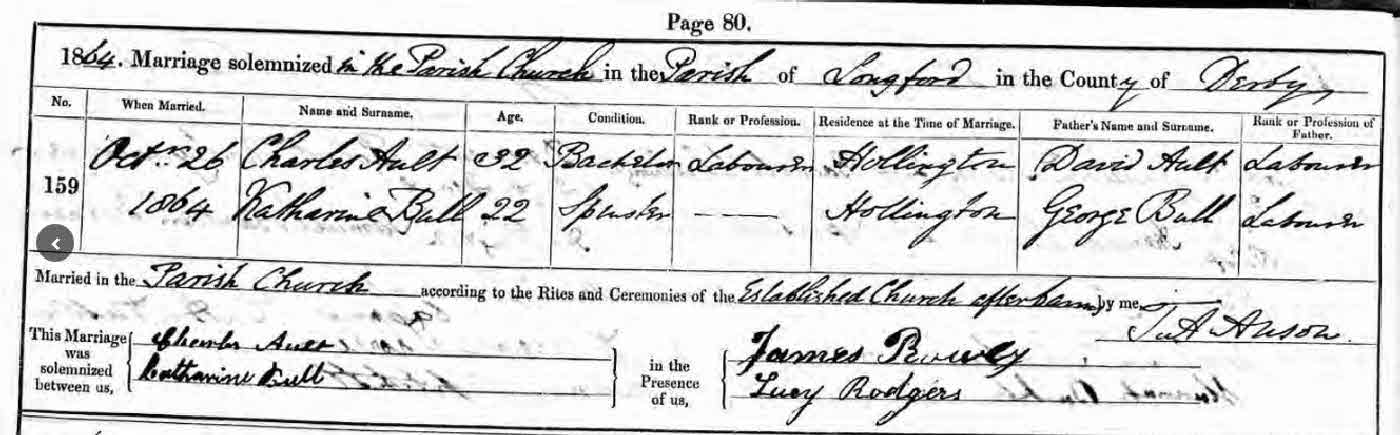 Page 80.
1864. Marriage solemnized in the Parish Church in the Parish of Longford in the County of Derby
No. When Married. Name and Surname. Age. Condition. Rank or Profession. Residence at the Time of Marriage. Father's Name and Surname. Rank or Profession of Father.
159 Octr 26 Charles Ault 32 Bachelor Labourer Hollington David Ault Labourer
1864 Katharine Bull 22 Spinster — Hollington George Bull Labourer
Married in the Parish Church according to the Rites and Ceremonies of the Established Church after banns by me,
Anson
This Marriage was solemnized between us, Charles Ault in the Presence of us, James
Catharine Bull Lucy Rodgers